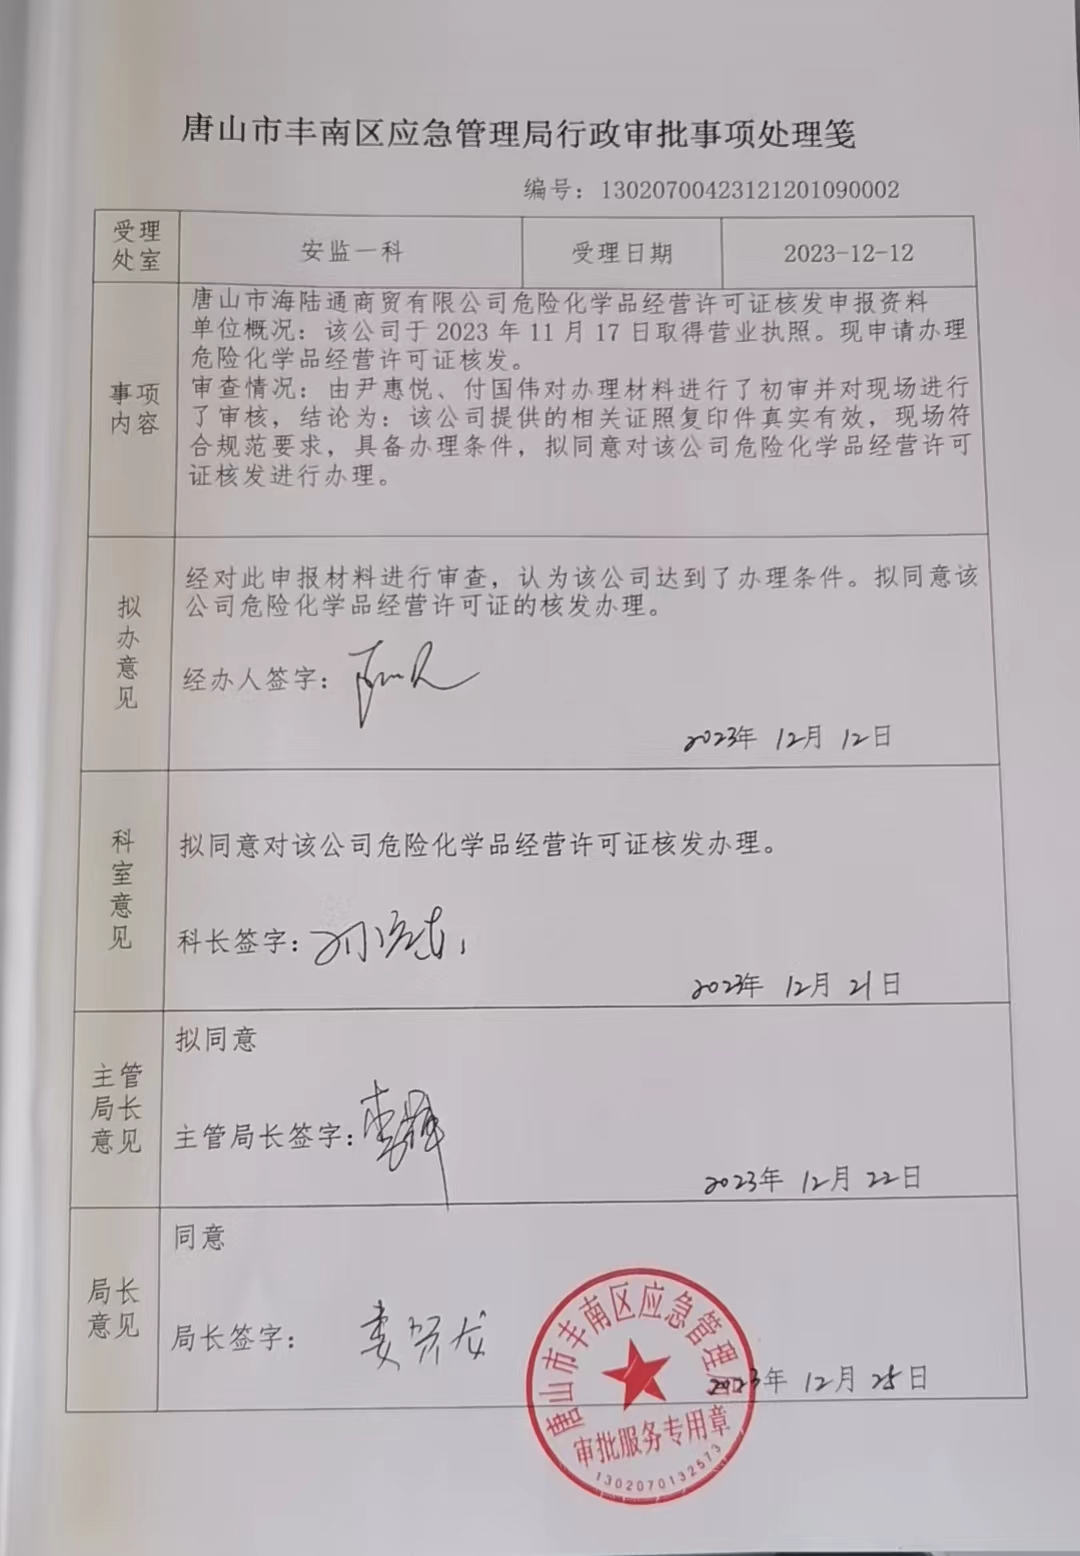 唐山市丰南区应急管理局行政审批事项处理笺
编号：13020700423121201090002
受理处室
安监一科
受理日期
2023-12-12
事项内容
唐山市海陆通商贸有限公司危险化学品经营许可证核发申报资料
单位概况：该公司于 2023 年 11 月 17 日取得营业执照。现申请办理
危险化学品经营许可证核发。
审查情况：由尹惠悦、付国伟对办理材料进行了初审并对现场进行
了审核，结论为：该公司提供的相关证照复印件真实有效，现场符
合规范要求，具备办理条件，拟同意对该公司危险化学品经营许可
证核发进行办理。
拟办意见
经对此申报材料进行审查，认为该公司达到了办理条件。拟同意该
公司危险化学品经营许可证的核发办理。
经办人签字：
2023年 12月 12日
科室意见
拟同意对该公司危险化学品经营许可证核发办理。
科长签字：
2023年 12月 21日
主管局长意见
拟同意
主管局长签字：
2023年 12月 22日
局长意见
同意
局长签字：
2023年 12月 25日
唐山市丰南区应急管理局
审批服务专用章
1302070132573